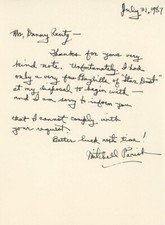 July 31, 1967
Mr. Danny
Thanks for your very
kind note. Unfortunately, I had
only a very few Playbills of "Star Dust"
at my disposal to begin with —
and I am sorry to inform you
that I cannot comply with
your request.
Better luck next time!
Mitchell Parish